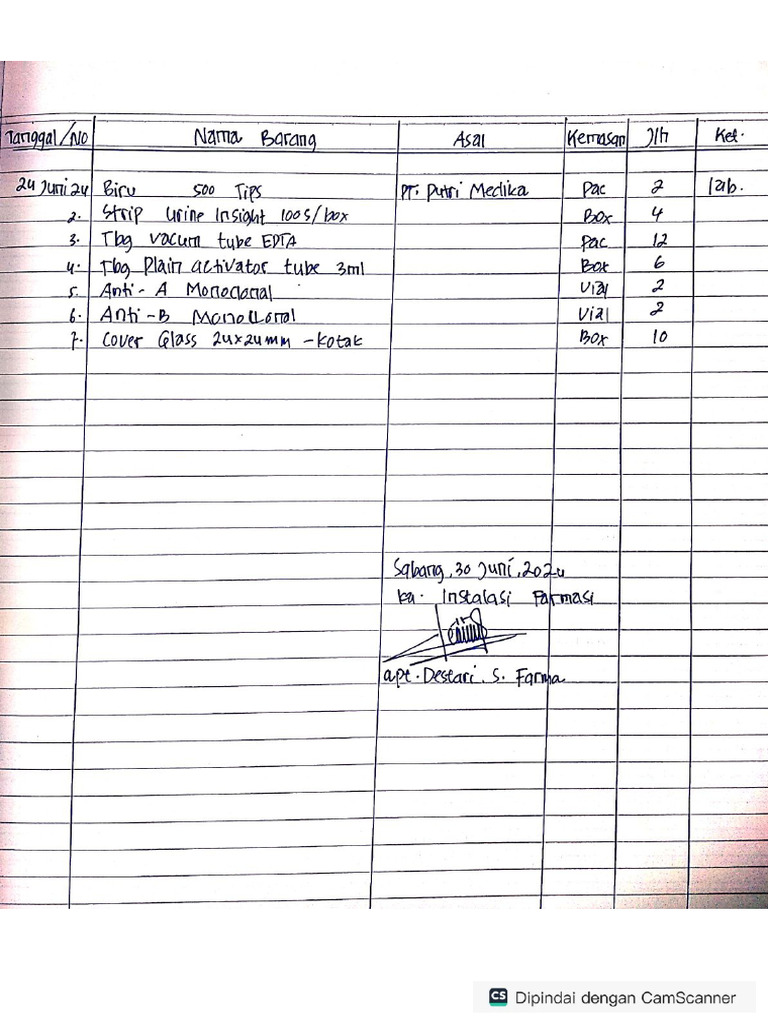 Tanggal/No Nama Barang Asal Kemasan Jlh Ket.
24 Juni 24 Biru 500 Tips PT. Putri Medika Pac 2 lab.
2. Strip Urine Insight 100S/box Box 4
3. Tbg vacum tube EDTA Pac 12
4. Tbg Plain activator tube 3ml Box 6
5. Anti-A Monoclonal Vial 2
6. Anti-B Monoclonal Vial 2
7. Cover Glass 24x24mm - Kotak Box 10
Sabang, 30 Juni, 2024
Ka. Instalasi Farmasi
apt. Destari. S. Farma
CS Dipindai dengan CamScanner